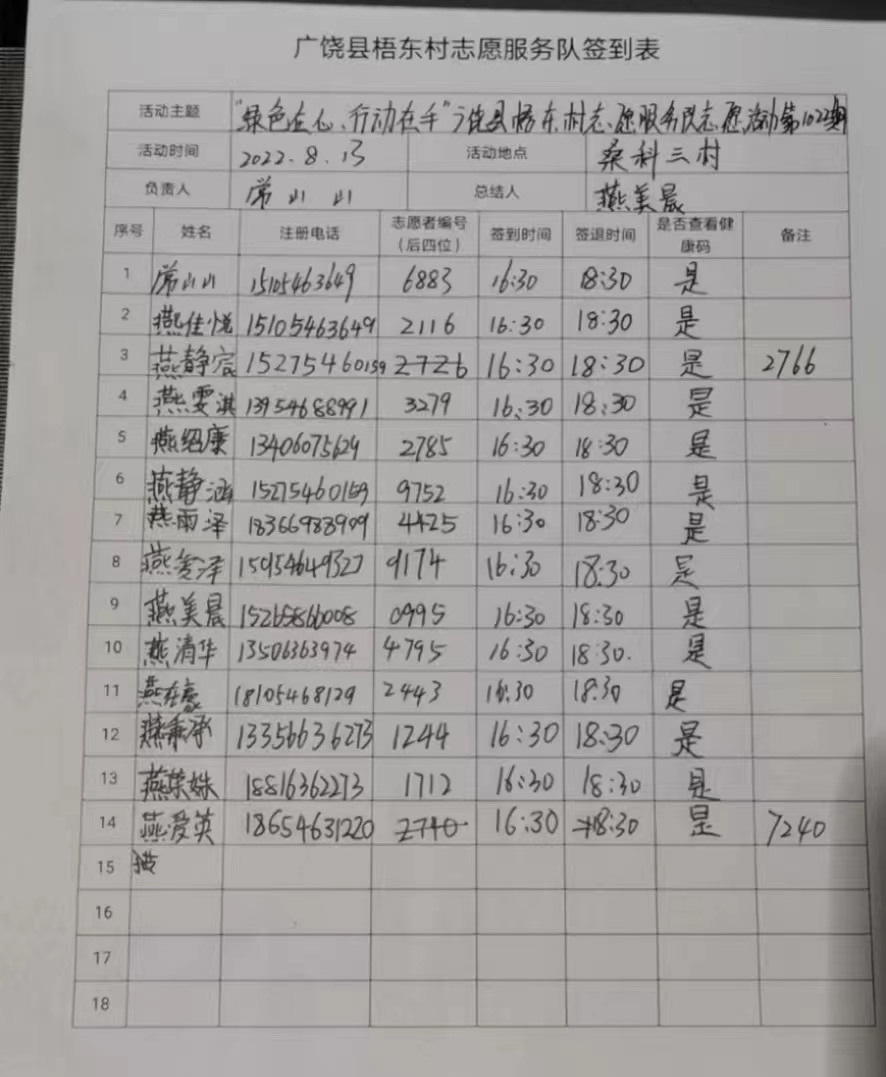 广饶县梧东村志愿服务队签到表
活动主题 "绿色在心、行动在手"广饶县梧东村志愿服务队志愿活动第1022期
活动时间 2022.8.13 活动地点 桑科三村
负责人 常山山 总结人 燕美晨
序号 姓名 注册电话 志愿者编号（后四位） 签到时间 签退时间 是否查看健康码 备注
1 常山山 15105463649 6883 16:30 18:30 是
2 燕佳悦 15105463649 2116 16:30 18:30 是
3 燕静宸 15275460159 2726 16:30 18:30 是 2766
4 燕雯淇 13954688991 3279 16:30 18:30 是
5 燕绍康 13406075629 2785 16:30 18:30 是
6 燕静涵 15275460159 9752 16:30 18:30 是
7 燕雨泽 18366983909 4425 16:30 18:30 是
8 燕 泽 15954649327 9174 16:30 18:30 是
9 燕美晨 15265866008 0995 16:30 18:30 是
10 燕清华 13506363974 4795 16:30 18:30. 是
11 燕在豪 18105468129 2443 16:30 18:30 是
12 燕秉承 13356636273 1244 16:30 18:30 是
13 燕荣姝 18816362273 1712 16:30 18:30 是
14 燕爱英 18654631220 2740 16:30 18:30 是 7240
15
16
17
18